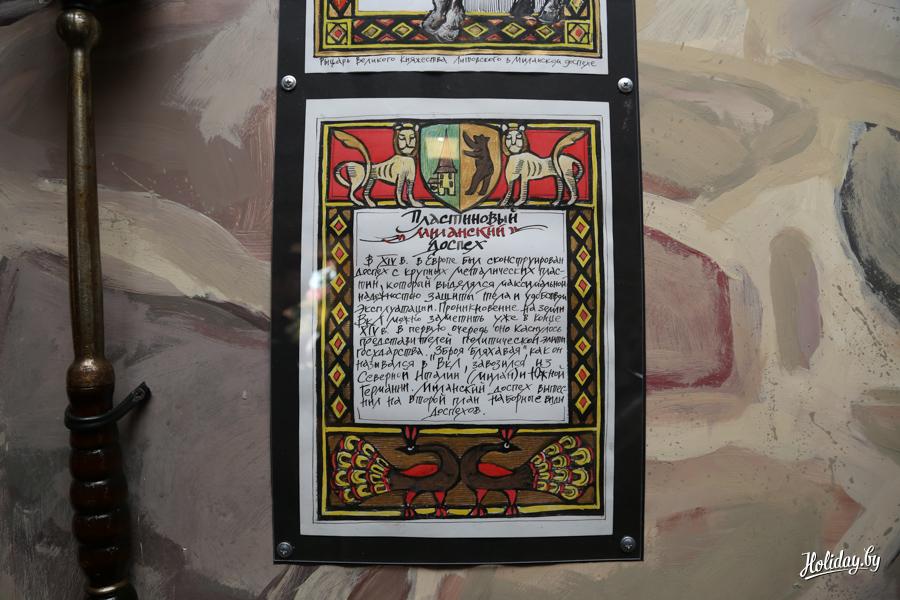 Рыцарь Великого Княжества Литовского в Миланском доспехе
Пластиновый
"Миланский"
доспех
В XIV в. в Европе был сконструирован
доспех с крупных металических плас-
тин, который выделялся максимальной
надежностью защиты тела и удобством
эксплуатации. Проникновение на земли
ВКЛ можно заметить уже в конце
XIV в. В первую очередь оно каснулось
представителей политической элиты
государства. "Зброя бляхавая", как он
назывался в ВКЛ, завозился из
Северной Италии (Милан) и Южной
Германии. Миланский доспех вытес-
нил на второй план наборные виды
доспехов.
Holiday.by